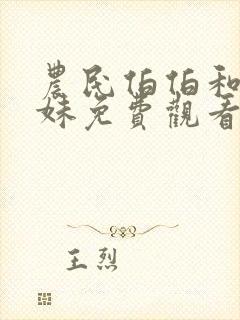 農民伯伯和
妹免費觀看
王烈